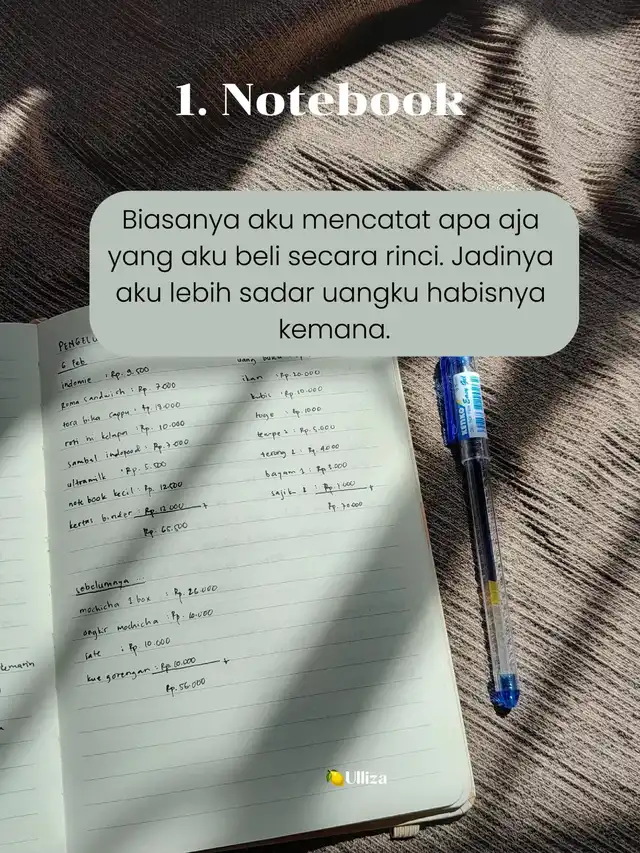 1. Notebook
Biasanya aku mencatat apa aja
yang aku beli secara rinci. Jadinya
aku lebih sadar uangku habisnya
kemana.
6 Feb
indomie : Rp. 9.500
roma sandwich : Rp. 7.000
tora bika cappu : Rp. 13.000
roti hi kelapa : Rp. 10.000
sambal indofood : Rp. 7.000
ultramilk : Rp. 5.500
note book kecil : Rp. 12.500
kertas binder :
Rp. 66.500
sebelumnya ...
mochicha 1 box : Rp. 26.000
ongkir mochicha : Rp. 10.000
sate : Rp. 10.000
kue gorengan : Rp 10.000
Rp. 56.000
ikan : Rp. 20.000
kubis : Rp. 10.000
toge : Rp. 1000
tempe 2 : Rp. 5.000
terong 2 : Rp. 4000
bayam 1 :
sajik 2 :
🍋Ulliza